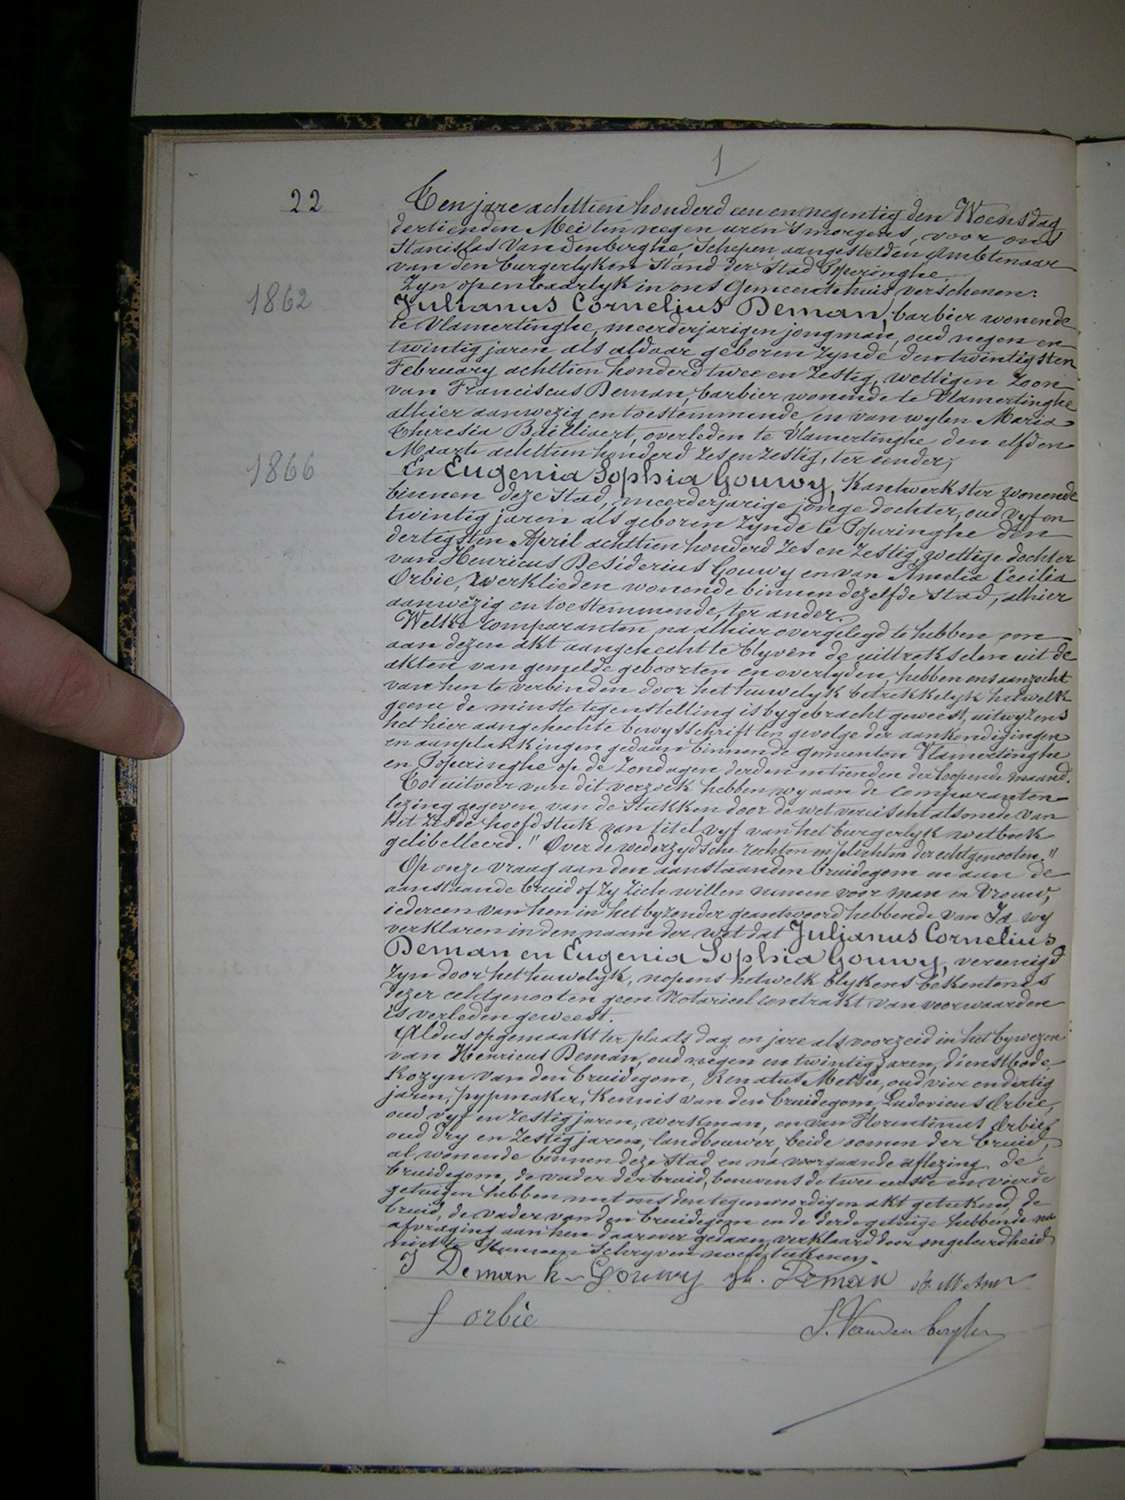 1
22
Ten jare achttien honderd een en negentig den Woensdag
dertienden Mei ten negen uren 's morgens, voor ons
Stanislas Vandenberghe, Schepen, aangestelden Ambtenaar
van den burgerlyken Stand der Stad Poperinghe
Zyn openbaarlyk in ons Gemeentehuis verschenen:
1862
Julianus Cornelius Deman, barbier wonende
te Vlamertinghe, meerderjarigen jongman, oud negen en
twintig jaren als aldaar geboren zynde den twintigsten
February achttien honderd twee en Zestig, wettigen Zoon
van Franciscus Deman, barbier wonende te Vlamertinghe
alhier aanwezig en toestemmende en van wylen Maria
Theresia Baillieert, overleden te Vlamertinghe den elfden
Maarte achttien honderd Zes en Zestig, ter eender;
1866
En Eugenia Sophia Gouwy, Kantwerkster wonende
binnen deze stad, meerderjarige jonge dochter, oud vyf en
twintig jaren als geboren zynde te Poperinghe den
dertigsten April achttien honderd Zes en Zestig, wettige dochter
van Henricus Desiderius Gouwy en van Amelia Cecilia
Orbie, Werklieden wonende binnen dezelfde stad, alhier
aanwezig en toestemmende, ter ander.
Welke Comparanten, na alhier overgelegd te hebben om
aan dezen akt aangehecht te blyven de uittrekselen uit de
akten van gemelde geboorten en overlyden, hebben ons aanzocht
van hen te verbinden door het huwelyk betrekkelyk hetwelk
geene de minste tegenstelling is bygebracht geweest, uitwyzens
het hier aangehechte bewysschrift ten gevolge der aankondigingen
en aanplakkingen gedaan binnen de Gemeenten Vlamertinghe
en Poperinghe op de Zondagen derden en tienden der loopende maand.
Tot uitvoer van dit verzoek hebben wy aan de Comparanten
lezing gegeven van de stukken door de wet vereischt alsmede van
het Zesde hoofdstuk van titel vyf van het burgerlyk wetboek
gelibelleerd. " Over de wederzydsche rechten en plichten der echtgenooten."
Op onze vraag aan den aanstaanden bruidegom en aan de
aanstaande bruid of zy zich willen nemen voor man en vrouw,
iedereen van hen in het byzonder geantwoord hebbende van Ja wy
verklaren in den naam der wet dat Julianus Cornelius
Deman en Eugenia Sophia Gouwy, vereenigd
zyn door het huwelyk, nopens hetwelk blykens bekentenis
dezer echtgenooten geen Notarieel contrakt van voorwaarden
is verleden geweest.
Aldus opgemaakt ter plaats dag en jare als voorzeid in het bywezen
van Henricus Deman, oud negen en twintig jaren, dienstbode
Kozyn van den bruidegom, Renatus Metsu, oud vier en dertig
jaren, pypmaker, Kennis van den bruidegom, Ludovicus Orbie,
oud vyf en Zestig jaren, werkman, en van Florentinus Orbie,
oud dry en Zestig jaren, landbouwer, beide oomen der bruid,
al wonende binnen deze Stad en na voorgaande aflezing de
bruidegom, de vader der bruid, benevens de twee eerste en vierde
getuigen hebben met ons den tegenwoordigen akt geteekend, de
bruid, de vader van den bruidegom en de derde getuige hebbende na
afvraging aan hen daarover gedaan, verklaard door ongeleerdheid
niet te Kunnen Schryven noch teekenen.
J Deman h Gouwy h. Deman R. Metsu
f orbie S. Vandenberghe